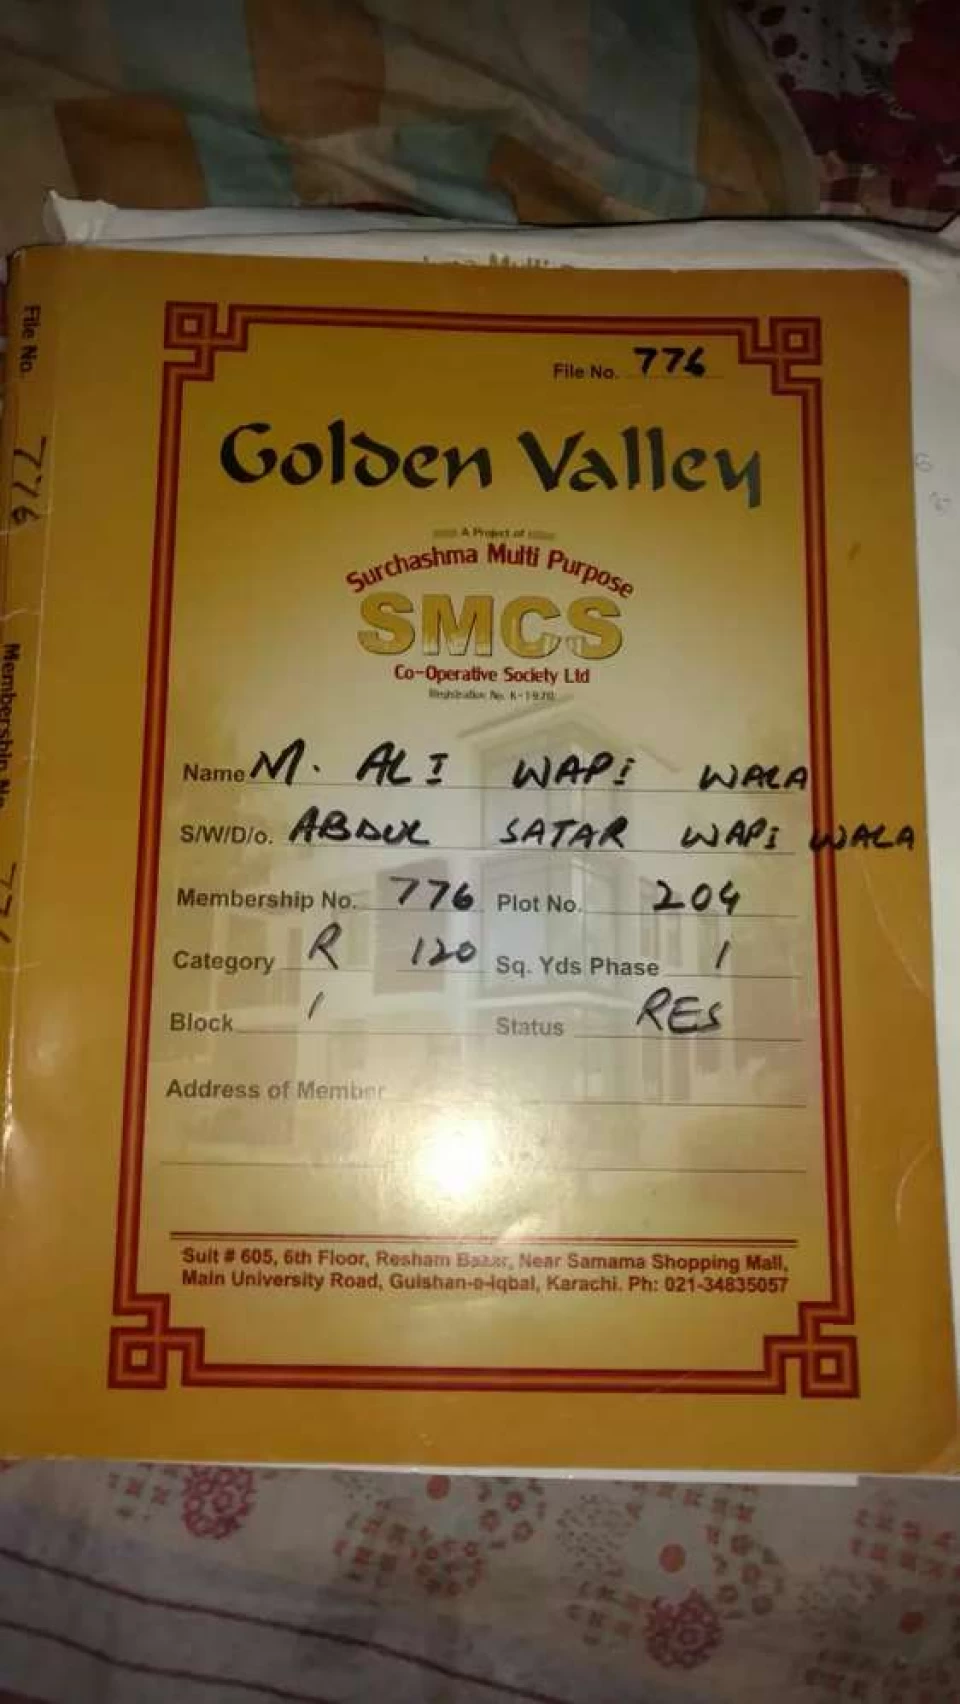 File No. 776
Golden Valley
A Project of
Surchashma Multi Purpose
SMCS
Co-Operative Society Ltd
Registration No. K-1970
Name M. ALI WAPI WALA
S/W/D/o. ABDUL SATAR WAPI WALA
Membership No. 776 Plot No. 204
Category R 120 Sq. Yds Phase 1
Block 1 Status RES
Address of Member
Suit # 605, 6th Floor, Resham Bazar, Near Samama Shopping Mall,
Main University Road, Gulshan-e-Iqbal, Karachi. Ph: 021-34835057
File No. 776
Membership No.